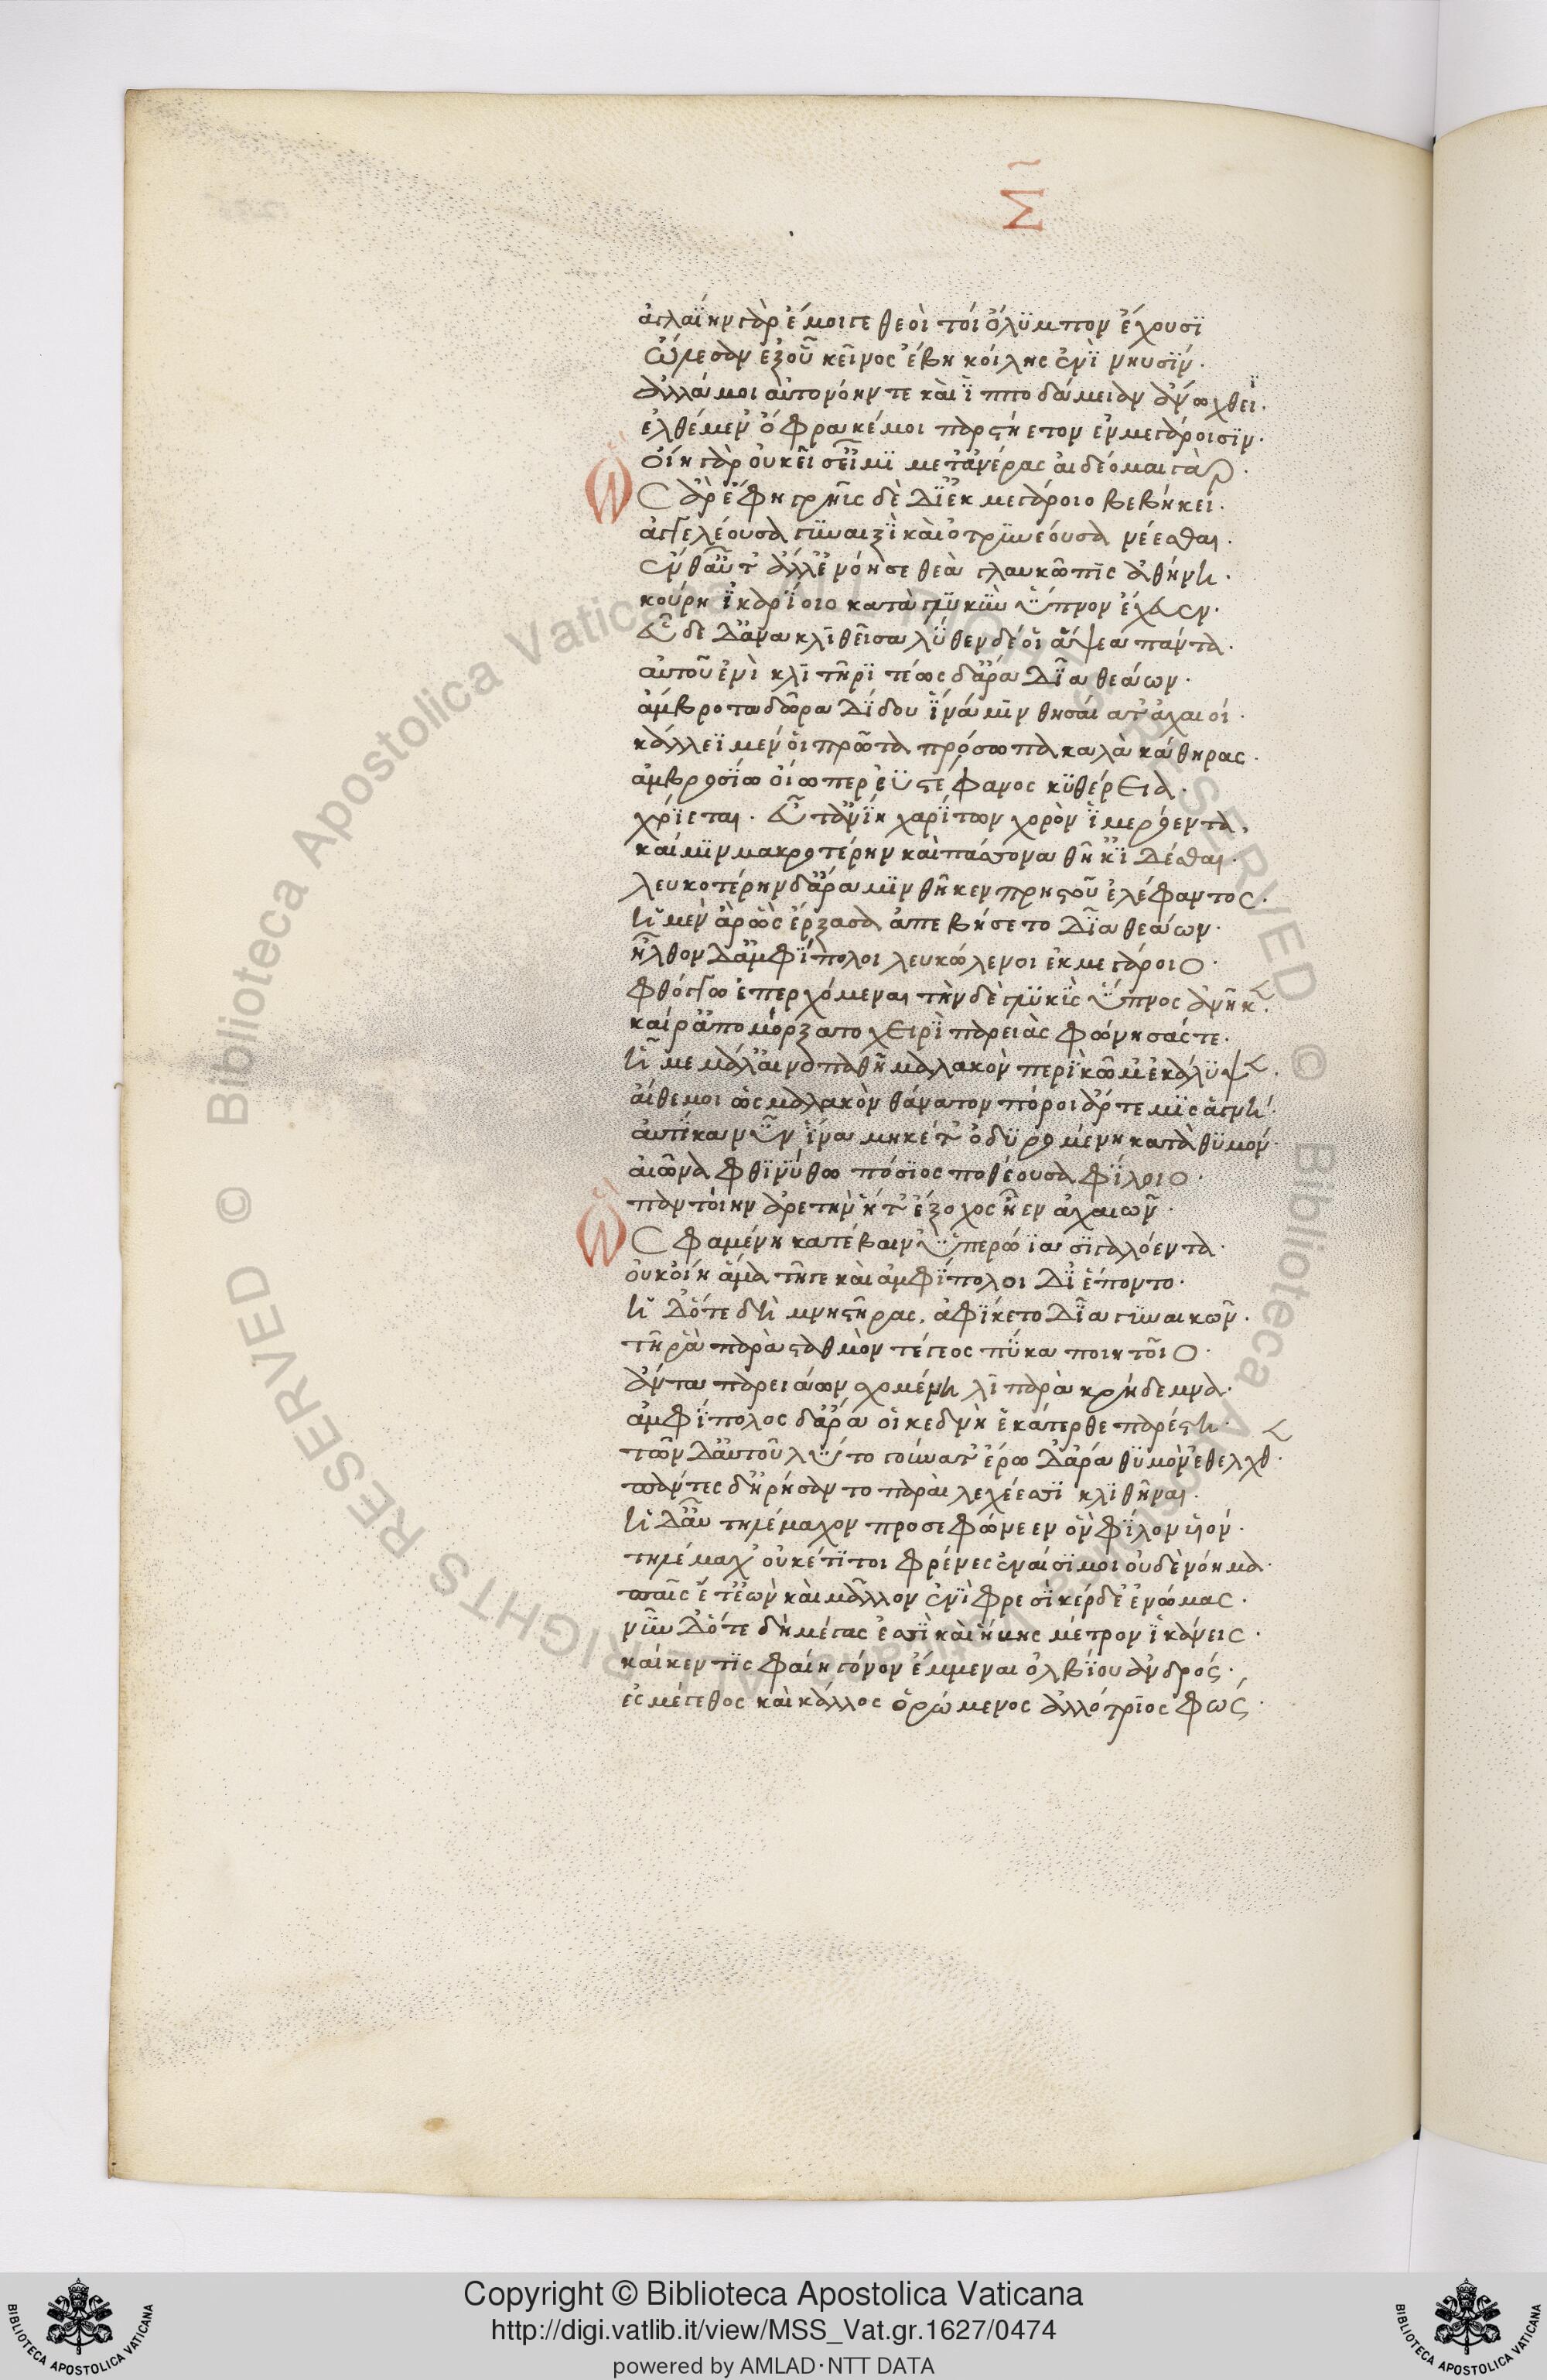 Σ
ἀγλαΐην γὰρ ἔμοιγε θεοὶ τοί ὄλϋμπον ἔχουσϊ
ὤλεσαν ἐξοῦ κεῖνος ἔβη κοίλης ἐνῒ νηυσΐν.
ἀλλά μοι αὐτονόην τε καὶ ἱπποδάμειαν ἄνωχθεϊ.
ἐλθέμεν ὄφρα κέ μοι παρστήετον ἐν μεγάροισϊν.
οἴη γὰρ οὐκ εἴσειμϊ μετ' ἀνέρας αἰδέομαι γὰρ.
Ὣς ἄρ' ἔφη γρηῢς δὲ δϊἐκ μεγάροιο βεβήκει.
ἀγγελέουσα γϋναιξῒ καὶ ὀτρϋνέουσα νέεσθαι.
ἔνθ' αὖτ' ἄλλ' ἐνόησε θεὰ γλαυκῶπις ἀθήνη.
κούρη ἰκαρΐοιο κατὰ γλϋκὺν ὕπνον ἔχευεν.
εὗδε δ' ἄνακλιθεῖσα λΰθεν δέ οἱ ἅψεα πάντα.
αὐτοῦ ἐνὶ κλιτῆρϊ τέως δ' ἄρα δῖα θεάων.
ἄμβροτα δῶρα δΐδου ἵνά μϊν θησαίατ' ἀχαιοί.
κάλλεϊ μέν οἱ πρῶτα πρόσωπα καλὰ κάθηρας.
ἀμβροσΐω οἵω περ ἐϋστέφανος κϋθέρεια.
χρΐεται. εὖτ' ἂν ἴη χαρΐτων χορὸν ἱμερόεντα.
καί μϊν μακροτέρην καὶ πάσσονα θῆκ' ἰδέσθαι.
λευκοτέρην δ' ἄρα μϊν θῆκεν πρηστοῦ ἐλέφαντος.
ἡ μὲν ἂρ ὣς ἔρξασα ἀπεβήσετο δῖα θεάων.
ἦλθον δ' ἀμφΐπολοι λευκώλενοι ἐκ μεγάροιο.
φθόγγω ἐπερχόμεναι τὴν δὲ γλϋκῒς ὕπνος ἀνῆκε.
καί ρ' ἀπομόρξατο χειρῒ παρειὰς φώνησάς τε.
ἦ με μάλ' αἰνοπαθῆ μαλακὸν περῒ κῶμ' ἐκάλϋψε.
αἴθε μοι ὣς μαλακὸν θάνατον πόροι ἄρτεμϊς ἁγνή.
αὐτΐκα νῦν ἵνα μηκέτ' ὀδϋρομένη κατὰ θϋμόν.
αἰῶνα φθϊνΰθω πόσϊος ποθέουσα φΐλοιο.
παντοίην ἀρετὴν ἥτ' ἔξοχος ἦεν ἀχαιῶν.
Ὣς φαμένη κατέβαιν' ὑπερώϊα σϊγαλόεντα.
οὐκ οἴη ἅμα τῆγε καὶ ἀμφΐπολοι δύ' ἕποντο.
ἡ δ' ὅτε δὴ μνηστῆρας, ἀφΐκετο δῖα γϋναικῶν.
στῆ ρὰ παρὰ σταθμὸν τέγεος πΰκα ποιητοῖο.
ἄντα παρειάων σχομένη λιπαρὰ κρήδεμνα.
ἀμφΐπολος δ' ἄρα οἱ κεδνὴ ἑκάτερθε παρέστη.
τῶν δ' αὐτοῦ λΰτο γούνατ' ἔρω δ' ἄρα θϋμὸν ἔθελχθεν.
πάντες δ' ἠρήσαντο παραὶ λεχέεσσϊ κλϊθῆναι.
ἡ δ' αὖ τηλέμαχον προσεφώνεεν ὃν φΐλον υἱόν.
τηλέμαχ' οὐκέτϊ τοι φρένες ἐναίσϊμοι οὐδὲ νόημα.
παῖς ἔτ' ἐὼν καὶ μᾶλλον ἐνῒ φρεσῒ κέρδε' ἐνώμας.
νῦν δ' ὅτε δὴ μέγας ἐσσῒ καὶ ἥβης μέτρον ἱκάνεις.
καί κεν τϊς φαίη γόνον ἔμμεναι ὀλβΐου ἀνδρός.
ἐς μέγεθος καὶ κάλλος ὁρώμενος ἀλλότρϊος φώς.
Copyright © Biblioteca Apostolica Vaticana
http://digi.vatlib.it/view/MSS_Vat.gr.1627/0474
powered by AMLAD·NTT DATA